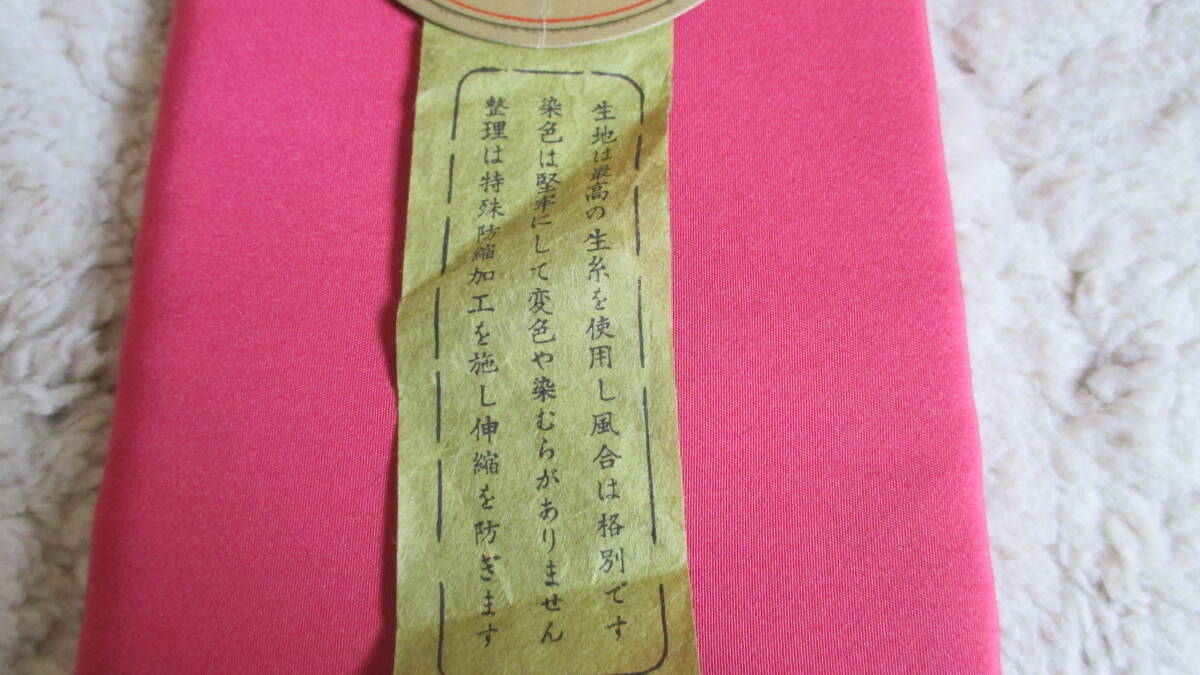 生地は最高の生糸を使用し風合は格別です
染色は堅牢にして変色や染むらがありません
整理は特殊防縮加工を施し伸縮を防ぎます